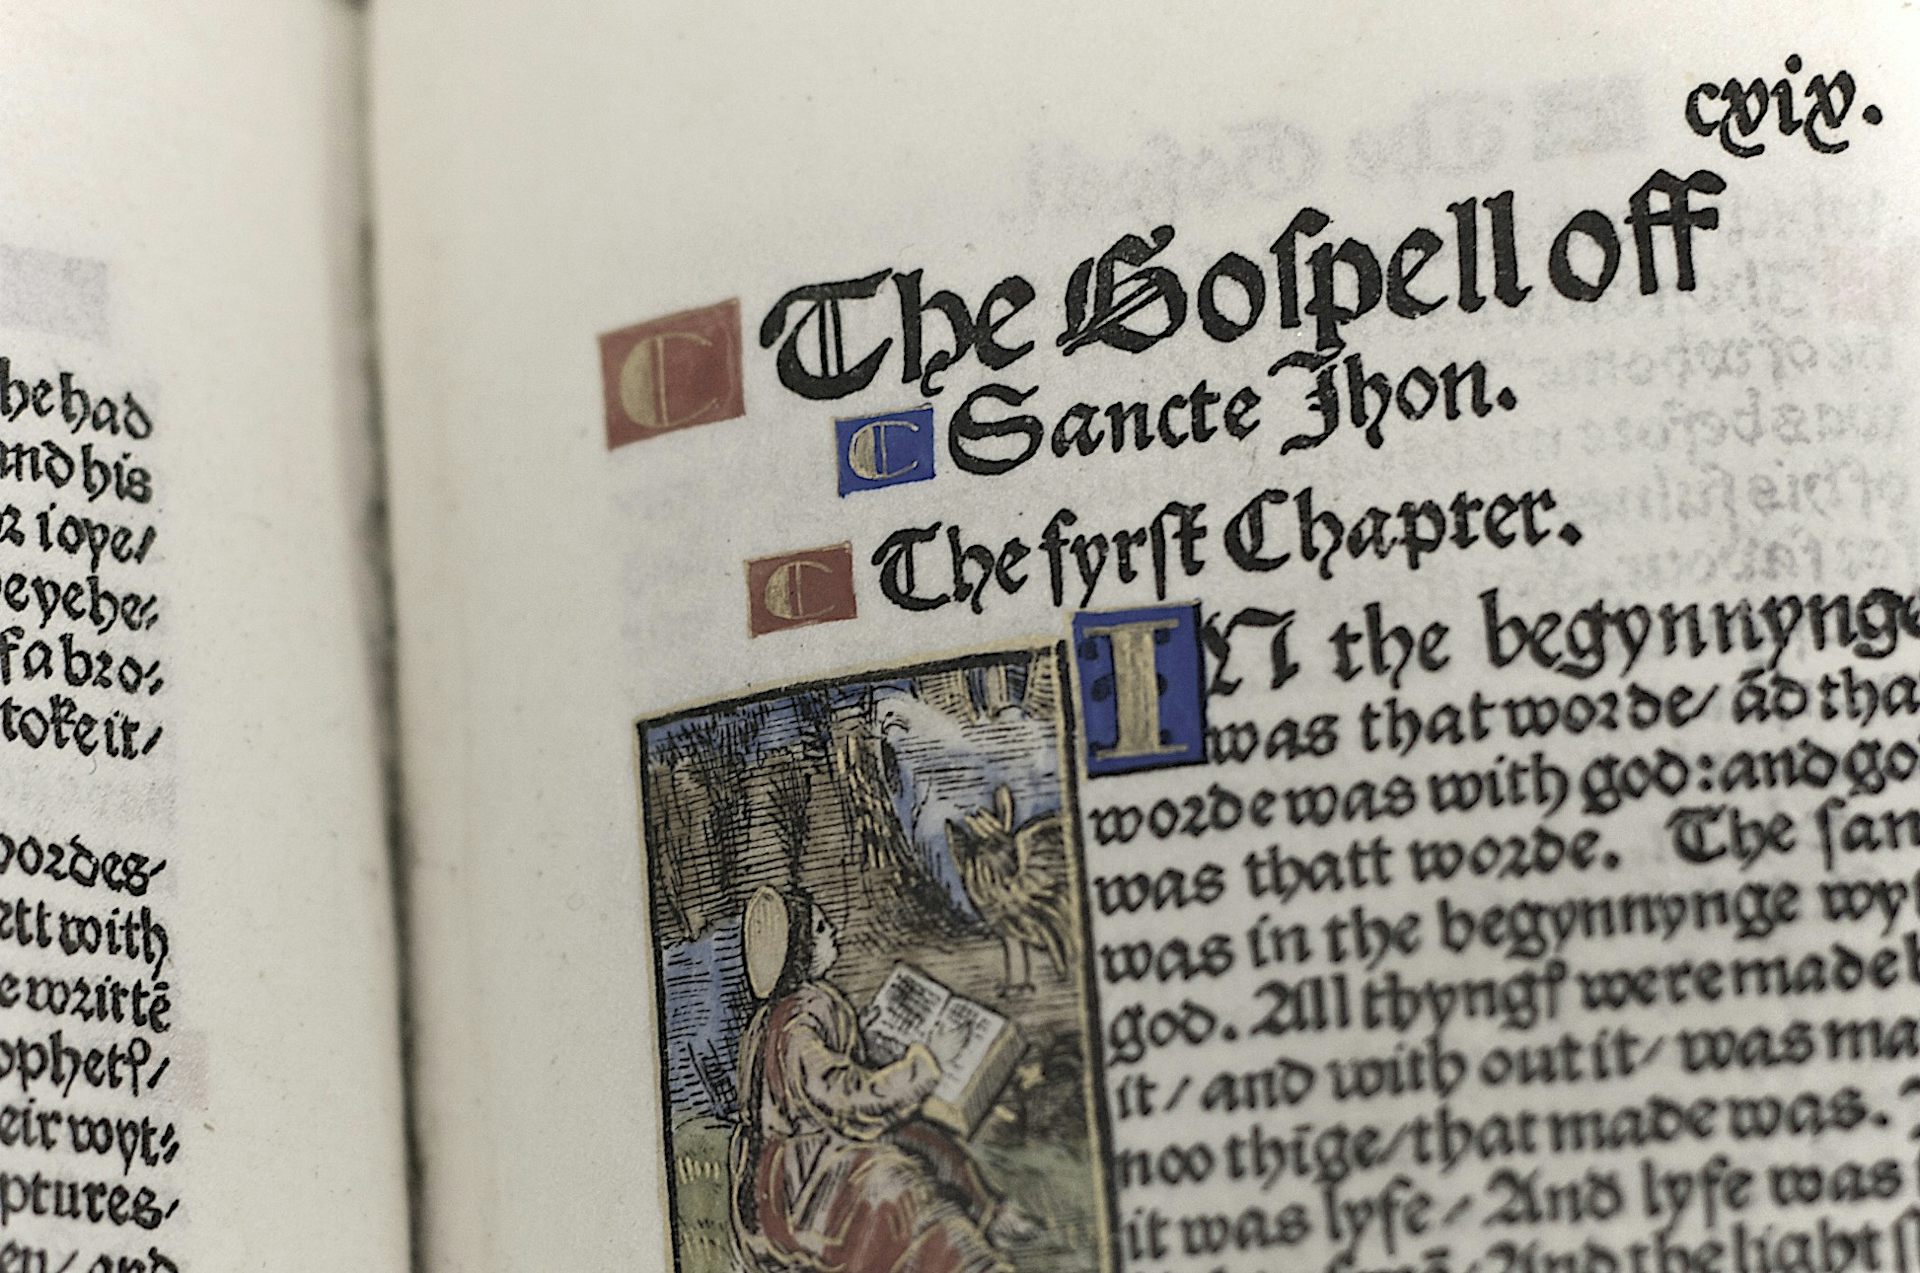 he had
and his
or iope/
eyehe⸗
f a bro⸗
toke it/
wordes/
ett with
e writtē
ophetꝭ/
eir wyt⸗
ptures/
en/ and
cxix.
The Goſpell off
Sancte Jhon.
The fyrſt Chapter.
IN the begynnynge
was that worde/ ād tha
worde was with god: and go
was thatt worde. The ſam
was in the begynnynge wyt
god. All thyngꝭ were made b
it/ and with out it/ was ma
noo thīge/ that made was.
it was lyfe/ And lyfe was
And the light